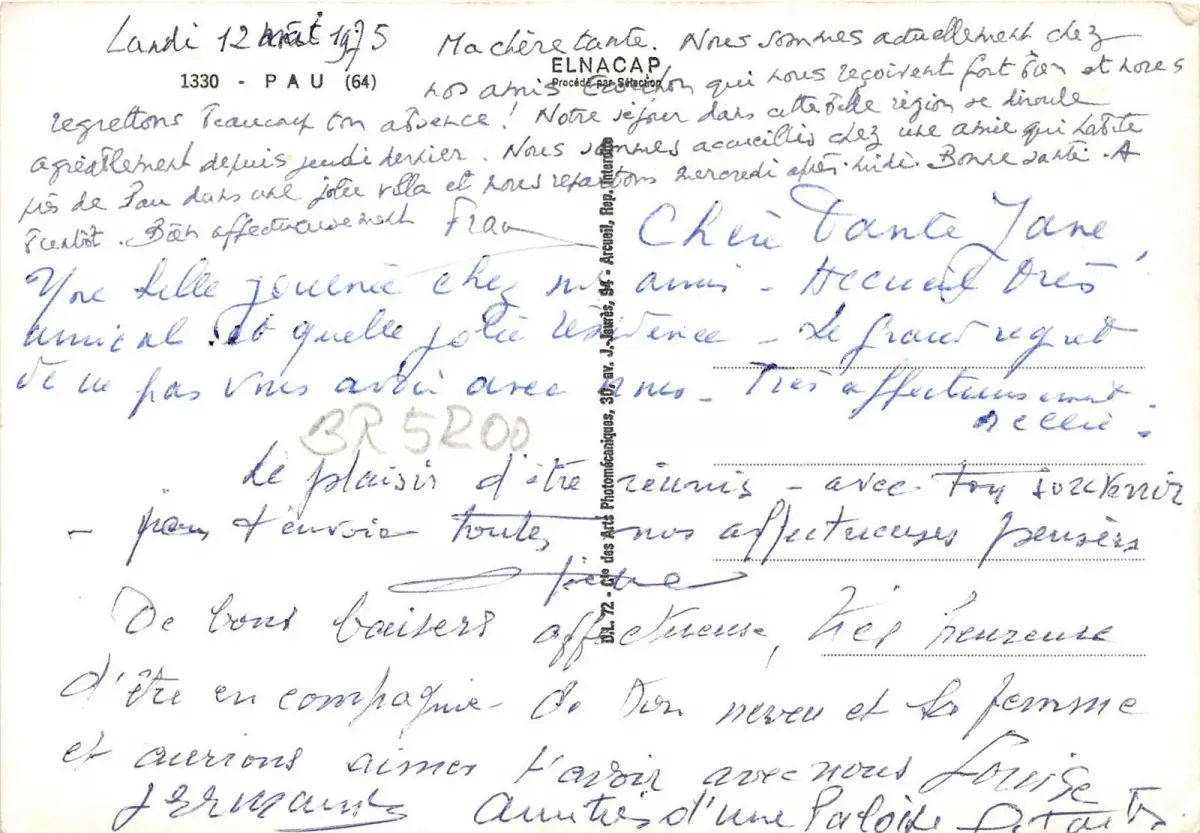 Lundi 12 1975
1330 - PAU (64)
ELNACAP
Procédé par Sélection
Ma chère tante. Nous sommes actuellement chez
nos amis qui nous reçoivent fort bien et nous
regrettons beaucoup ton absence ! Notre séjour dans cette belle région se déroule
agréablement depuis jeudi dernier. Nous sommes accueillis chez une amie qui habite
près de Pau dans une jolie villa et nous repartons mercredi après-midi. Bonne santé. A
bientôt. Bien affectueusement Fran
D.L. 72 - Cie des Arts Photomécaniques, 30, av. J.-Jaurès, 94 - Arcueil, Rep. Interdite
Chère Tante Jane,
Une belle journée chez nos amis - Accueil très
amical et quelle jolie résidence - Le grand regret
de ne pas vous avoir avec nous - Très affectueusement
BR 5R00
Le plaisir d'être réunis - avec ton souvenir
- pour t'envoie toutes nos affectueuses pensées
De bons baisers affectueuse, très heureuse
d'être en compagnie de ton neveu et sa femme
et aurions aimer t'avoir avec nous Louise
Germaine Amitiés d'une Paloise